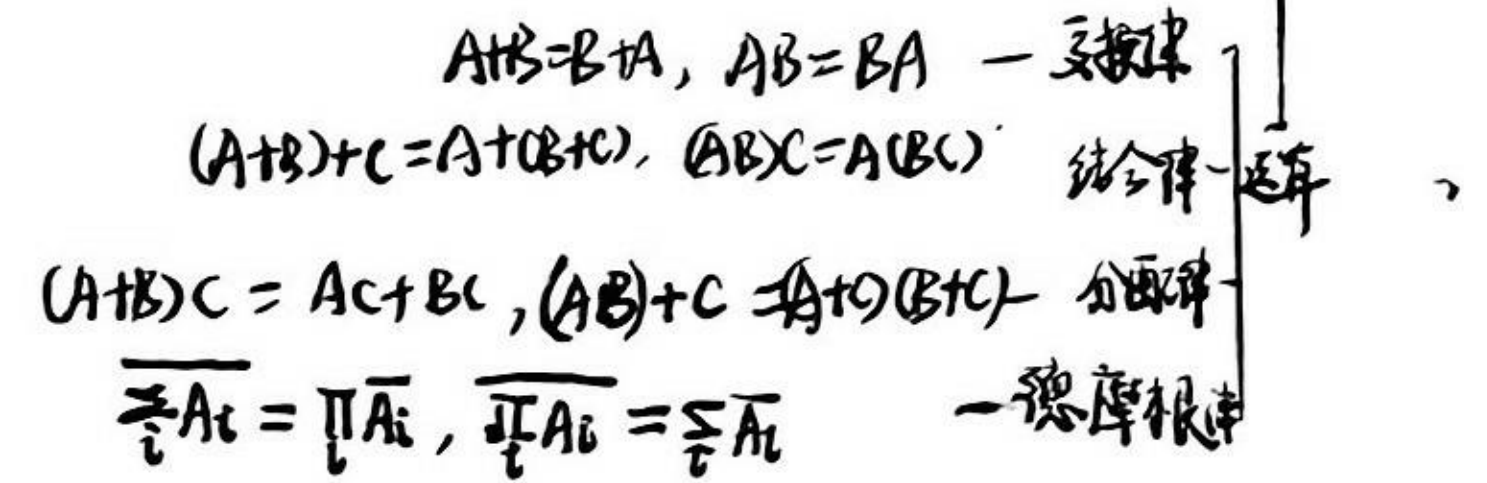 A+B=B+A, AB=BA — 交换律
(A+B)+C=A+(B+C), (AB)C=A(BC) 结合律 — 运算
(A+B)C = AC+BC, (AB)+C=(A+C)(B+C) — 分配律
$\overline{\sum_i A_i} = \prod_i \overline{A_i}$, $\overline{\prod_i A_i} = \sum_i \overline{A_i}$ — 德摩根律